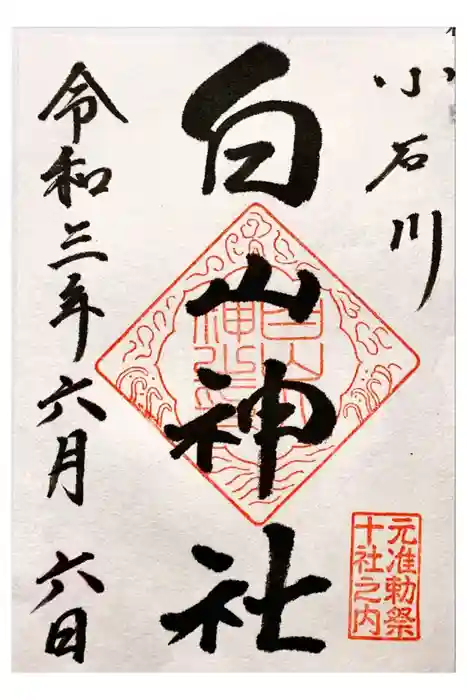 小石川
白山神社
令和三年六月六日
元准勅祭
十社之内
白山
神社